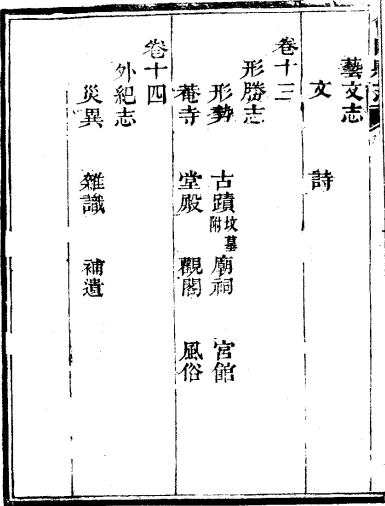 藝文志
文 詩
卷十三
形勝志
形勢 古蹟 附墳墓 廟祠 宮館
菴寺 堂殿 觀閣 風俗
卷十四
外紀志
災異 雜識 補遺